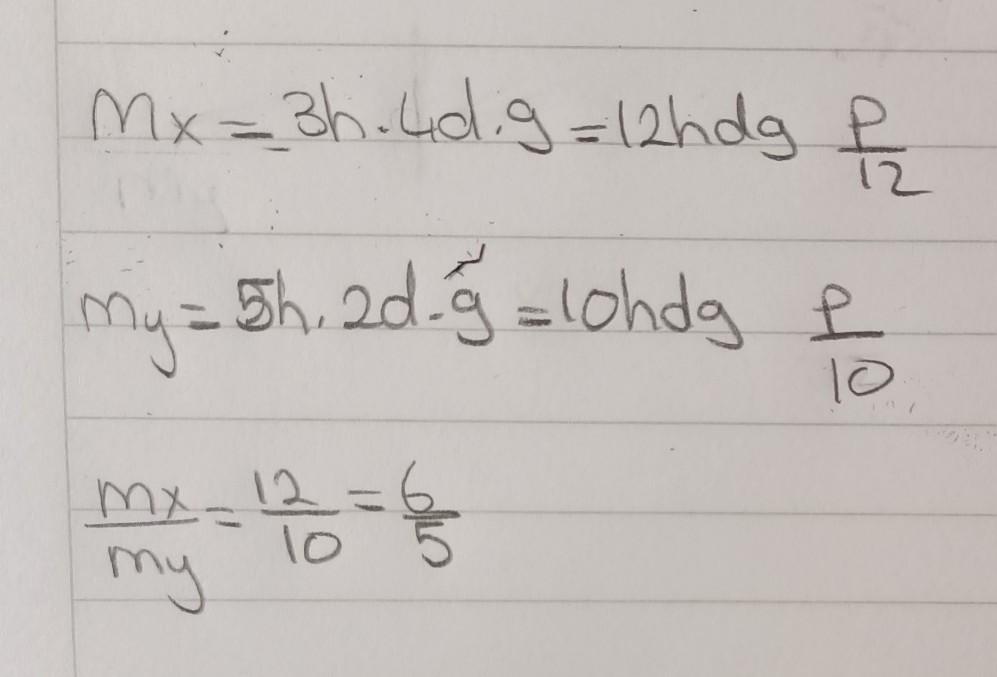 Mx = 3h.4d.g = 12hdg P/12
my = 5h.2d.g = 10hdg P/10
mx/my = 12/10 = 6/5